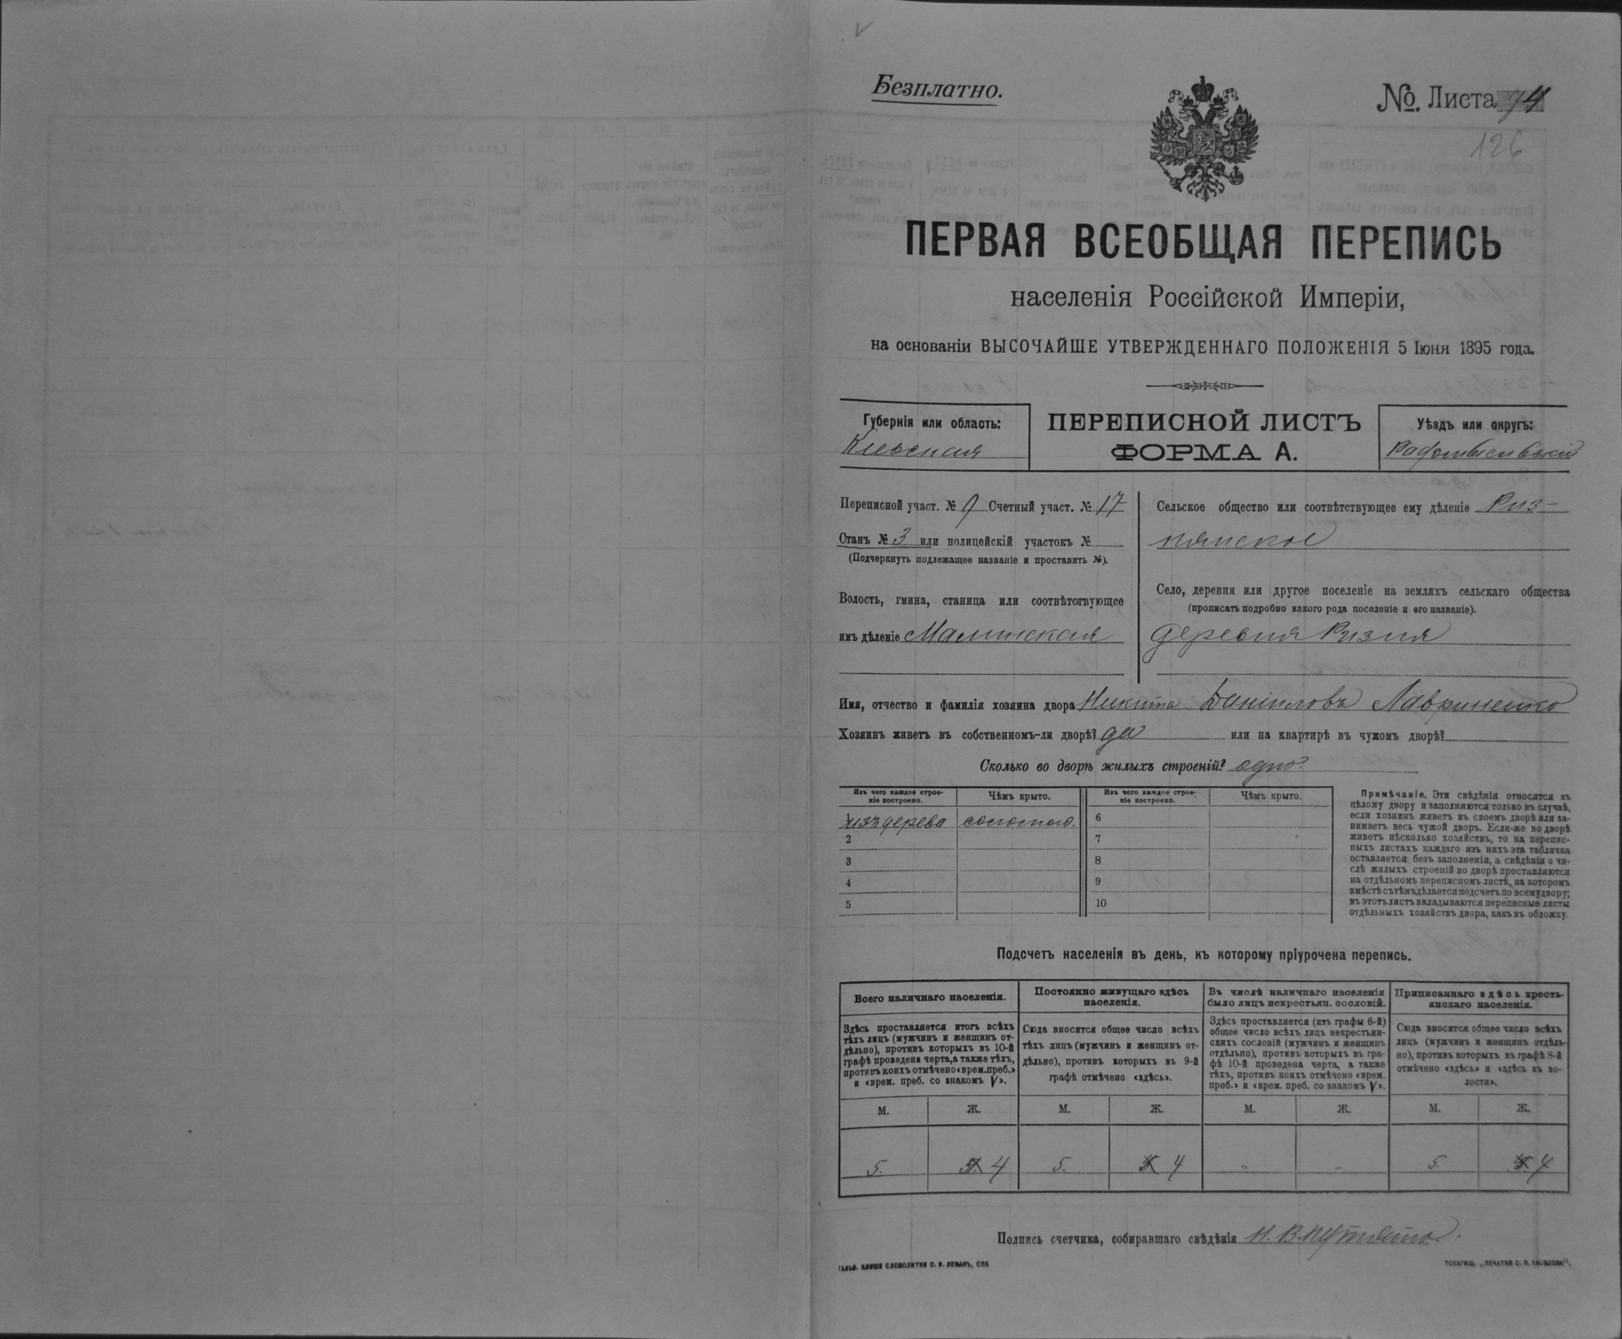 Безплатно.
№ Листа 94
126
ПЕРВАЯ ВСЕОБЩАЯ ПЕРЕПИСЬ
населенія Россійской Имперіи,
на основаніи ВЫСОЧАЙШЕ УТВЕРЖДЕННАГО ПОЛОЖЕНІЯ 5 Іюня 1895 года.
Губернія или область:
Кіевская
ПЕРЕПИСНОЙ ЛИСТЪ
ФОРМА А.
Уѣздъ или округъ:
Радомысльскій
Переписной участ. № 9 Счетный участ. № 17
Станъ № 3 или полицейскій участокъ №
(Подчеркнуть подлежащее названіе и проставить №).
Волость, гмина, станица или соотвѣтствующее
имъ дѣленіе Малинская
Сельское общество или соотвѣтствующее ему дѣленіе Риз-
нянское
Село, деревня или другое поселеніе на земляхъ сельскаго общества
(прописать подробно какого рода поселеніе и его названіе).
деревня Ризня
Имя, отчество и фамилія хозяина двора Никита Даніиловъ Лавриненко
Хозяинъ живетъ въ собственномъ-ли дворѣ? да или на квартирѣ въ чужомъ дворѣ?
Сколько во дворѣ жилыхъ строеній? одно
Изъ чего каждое строе-
ніе построено.
Чѣмъ крыто.
Изъ чего каждое строе-
ніе построено.
Чѣмъ крыто.
изъ дерева соломою.
2
3
4
5
6
7
8
9
10
Примѣчаніе. Эти свѣдѣнія относятся къ
цѣлому двору и заполняются только въ случаѣ,
если хозяинъ живетъ въ своемъ дворѣ или за-
нимаетъ весь чужой дворъ. Если-же во дворѣ
живетъ нѣсколько хозяйствъ, то на перепис-
ныхъ листахъ каждаго изъ нихъ эта табличка
оставляется безъ заполненія, а свѣдѣнія о чи-
слѣ жилыхъ строеній во дворѣ проставляются
на отдѣльномъ переписномъ листѣ, на которомъ
вмѣстѣ съ тѣмъ дѣлается подсчетъ по всему двору;
въ этотъ листъ вкладываются переписные листы
отдѣльныхъ хозяйствъ двора, какъ въ обложку.
Подсчетъ населенія въ день, къ которому пріурочена перепись.
Всего наличнаго населенія.
Здѣсь проставляется итогъ всѣхъ
тѣхъ лицъ (мужчинъ и женщинъ от-
дѣльно), противъ которыхъ въ 10-й
графѣ проведена черта, а также тѣхъ,
противъ коихъ отмѣчено «врем. преб.»
и «врем. преб. со знакомъ V».
Постоянно живущаго здѣсь
населенія.
Сюда вносится общее число всѣхъ
тѣхъ лицъ (мужчинъ и женщинъ от-
дѣльно), противъ которыхъ въ 9-й
графѣ отмѣчено «здѣсь».
Въ числѣ наличнаго населенія
было лицъ некрестьян. сословій.
Здѣсь проставляется (изъ графы 6-й)
общее число всѣхъ лицъ некрестьян-
скихъ сословій (мужчинъ и женщинъ
отдѣльно), противъ которыхъ въ гра-
фѣ 10-й проведена черта, а также
тѣхъ, противъ коихъ отмѣчено «врем.
преб.» и «врем. преб. со знакомъ V».
Приписаннаго здѣсь кресть-
янскаго населенія.
Сюда вносится общее число всѣхъ
лицъ (мужчинъ и женщинъ отдѣль-
но), противъ которыхъ въ графѣ 8-й
отмѣчено «здѣсь» и «здѣсь къ во-
лости».
М. Ж. М. Ж. М. Ж. М. Ж.
5. 5. 4 5. 5. 4 „ „ 5. 5. 4
Подпись счетчика, собиравшаго свѣдѣнія
ТОВАРИЩ. „ПЕЧАТНЯ С. П. ЯКОВЛЕВА“.